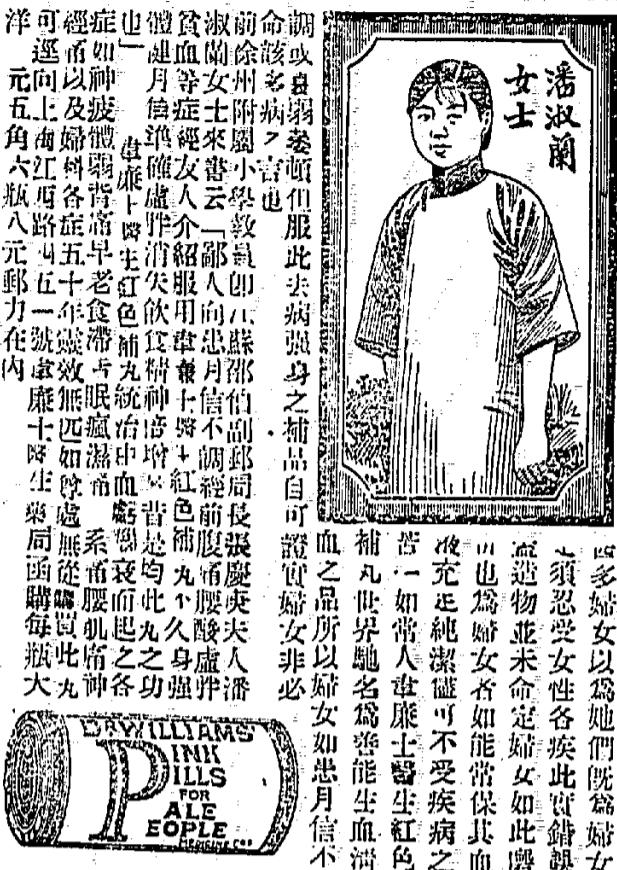 潘淑蘭
女士
多婦女以爲她們旣爲婦女
須忍受女性各疾此實錯誤
造物並未命定婦女如此
也爲婦女者如能常保其血
液充足純潔儘可不受疾病之
苦一如常人韋廉士醫生紅色
補丸世界馳名爲善能生血清
血之品所以婦女如患月信不
調或身弱委頓但服此去病强身之補品自可證實婦女非必
命該多病之言也
前徐州附關小學敎員卽江蘇邵伯副郵局長張慶夫人潘
淑蘭女士來書云「鄙人向患月信不調經前腹痛腰酸虛胖
貧血等症經友人介紹服用韋廉士醫生紅色補丸不久身强
體健月信準確虛胖消失飲食精神倍增昔是均此丸之功
也」 韋廉士醫生紅色補丸統治由血虧衰而起之各
症如神疲體弱背痛早老食滯失眠瘋濕痛 系痛腰肌痛神
經痛以及婦科各症五十年靈效無匹如尊處無從購買此丸
可逕向上海江西路四五一號韋廉士醫生藥局函購每瓶大
洋 元五角六瓶八元郵力在內
DR WILLIAMS
PINK
PILLS
FOR
PALE
PEOPLE
MEDICINE CO